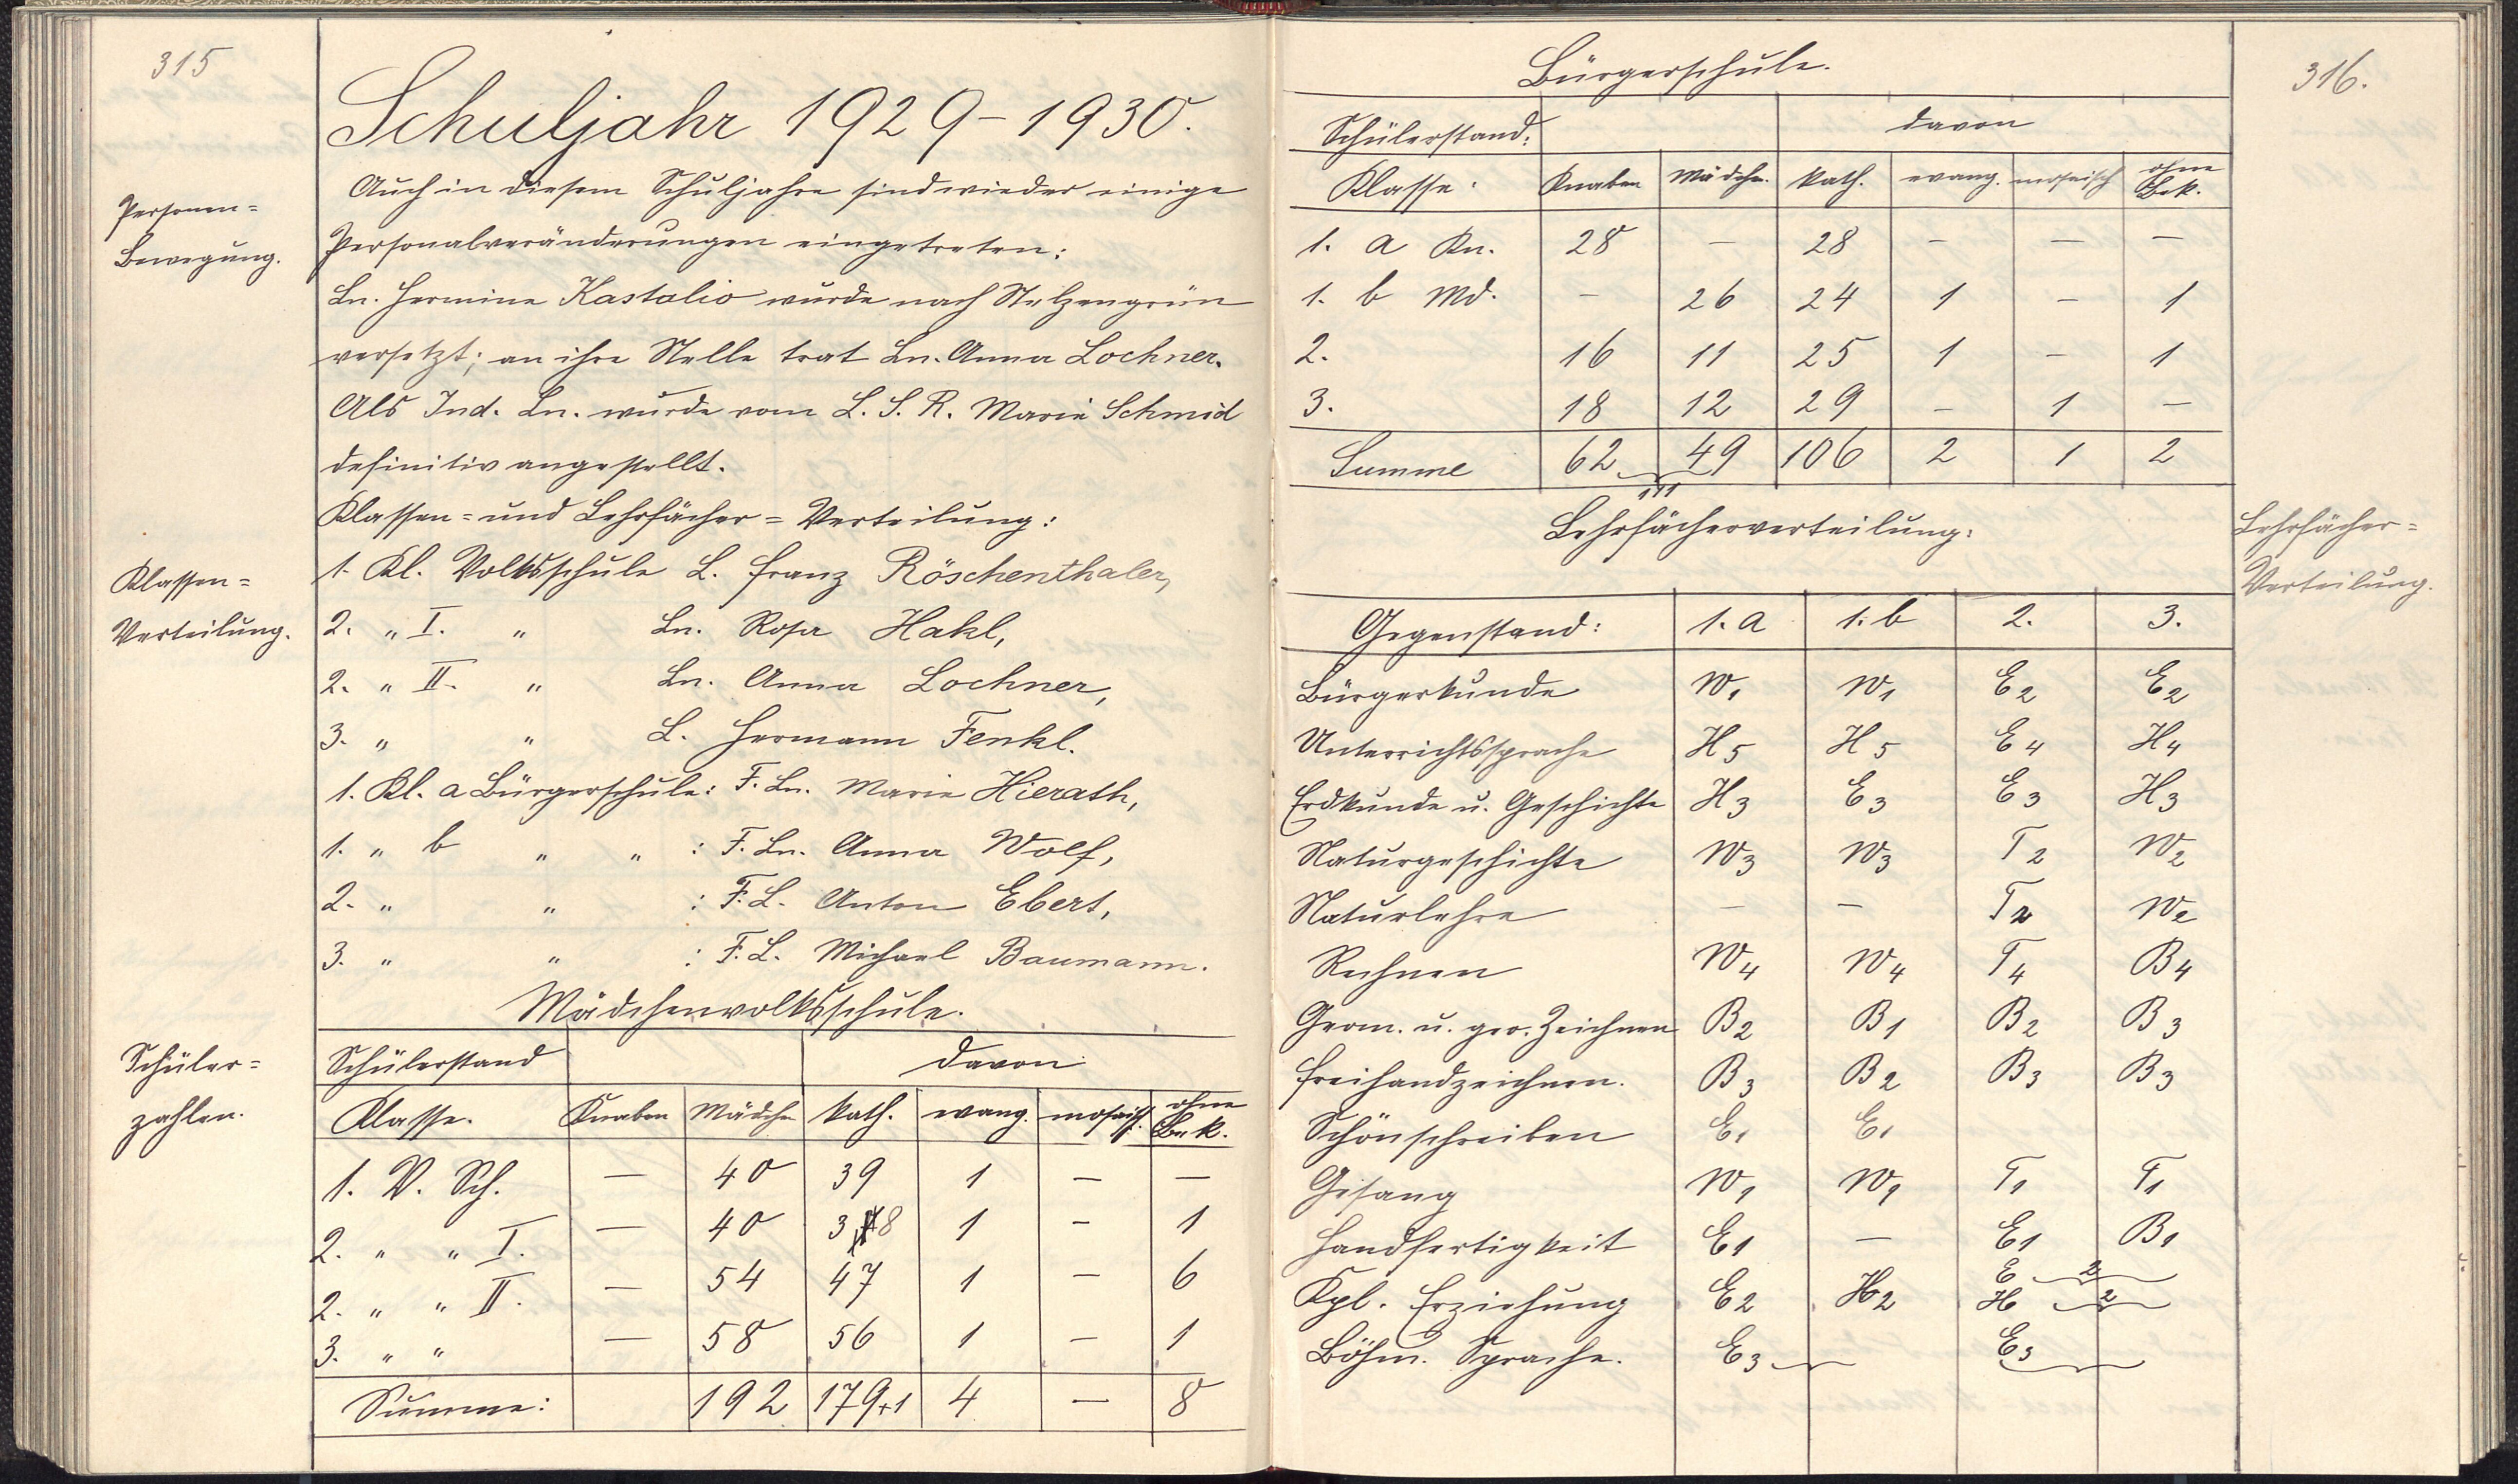 315
Schuljahr 1929-1930.
Personen=
Bewegung.
Auch in diesem Schuljahre sind wieder einige
Personalveränderungen eingetreten:
Ln. Hermine Kastalio wurde nach Stelzengrün
versetzt; an ihre Stelle trat Ln. Anna Lochner.
Als Ind. Ln. wurde vom L. S. R. Marie Schmid
definitiv angestellt.
Klassen= und Lehrfächer=Verteilung:
Klassen=
Verteilung.
1. Kl. Volksschule L. Franz Röschenthaler,
2. " I. " Ln. Rosa Hakl,
2. " II. " Ln. Anna Lochner,
3. " " L. Hermann Fenkl.
1. Kl. a Bürgerschule: F. Ln. Marie Hierath,
1. " b " " : F. Ln. Anna Wolf,
2. " " : F. L. Anton Ebert,
3. " " : F. L. Michael Baumann.
Mädchenvolksschule.
Schüler=
zahlen.
Schülerstand davon
Klasse. Knaben Mädchen kath. evang. mosaisch. ohne Bek.
1. V. Sch. — 40 39 1 — —
2. " " I. — 40 38 1 - 1
2. " " II. — 54 47 1 — 6
3. " " — 58 56 1 — 1
Summe: 192 179+1 4 — 8
316.
Bürgerschule.
Schülerstand: davon
Klasse: Knaben Mädchn. kath. evang. mosaisch ohne Bek.
1. a Kn. 28 — 28 — — —
1. b Md. — 26 24 1 — 1
2. 16 11 25 1 — 1
3. 18 12 29 — 1 —
Summe 62 49 106 2 1 2
111
Lehrfächerverteilung:
Lehrfächer=
Verteilung.
Gegenstand: 1. a 1. b 2. 3.
Bürgerkunde W1 W1 E2 E2
Unterrichtssprache H5 H5 E4 H4
Erdkunde u. Geschichte H3 E3 E3 H3
Naturgeschichte W3 W3 T2 W2
Naturlehre — — T2 W2
Rechnen W4 W4 T4 B4
Geom. u. geo. Zeichnen B2 B1 B2 B3
Freihandzeichnen. B3 B2 B3 B3
Schönschreiben E1 E1
Gesang W1 W1 T1 T1
Handfertigkeit E1 — E1 B1
Kpl. Erziehung E2 H2 E 2 H 2
Böhm. Sprache. E3 E3